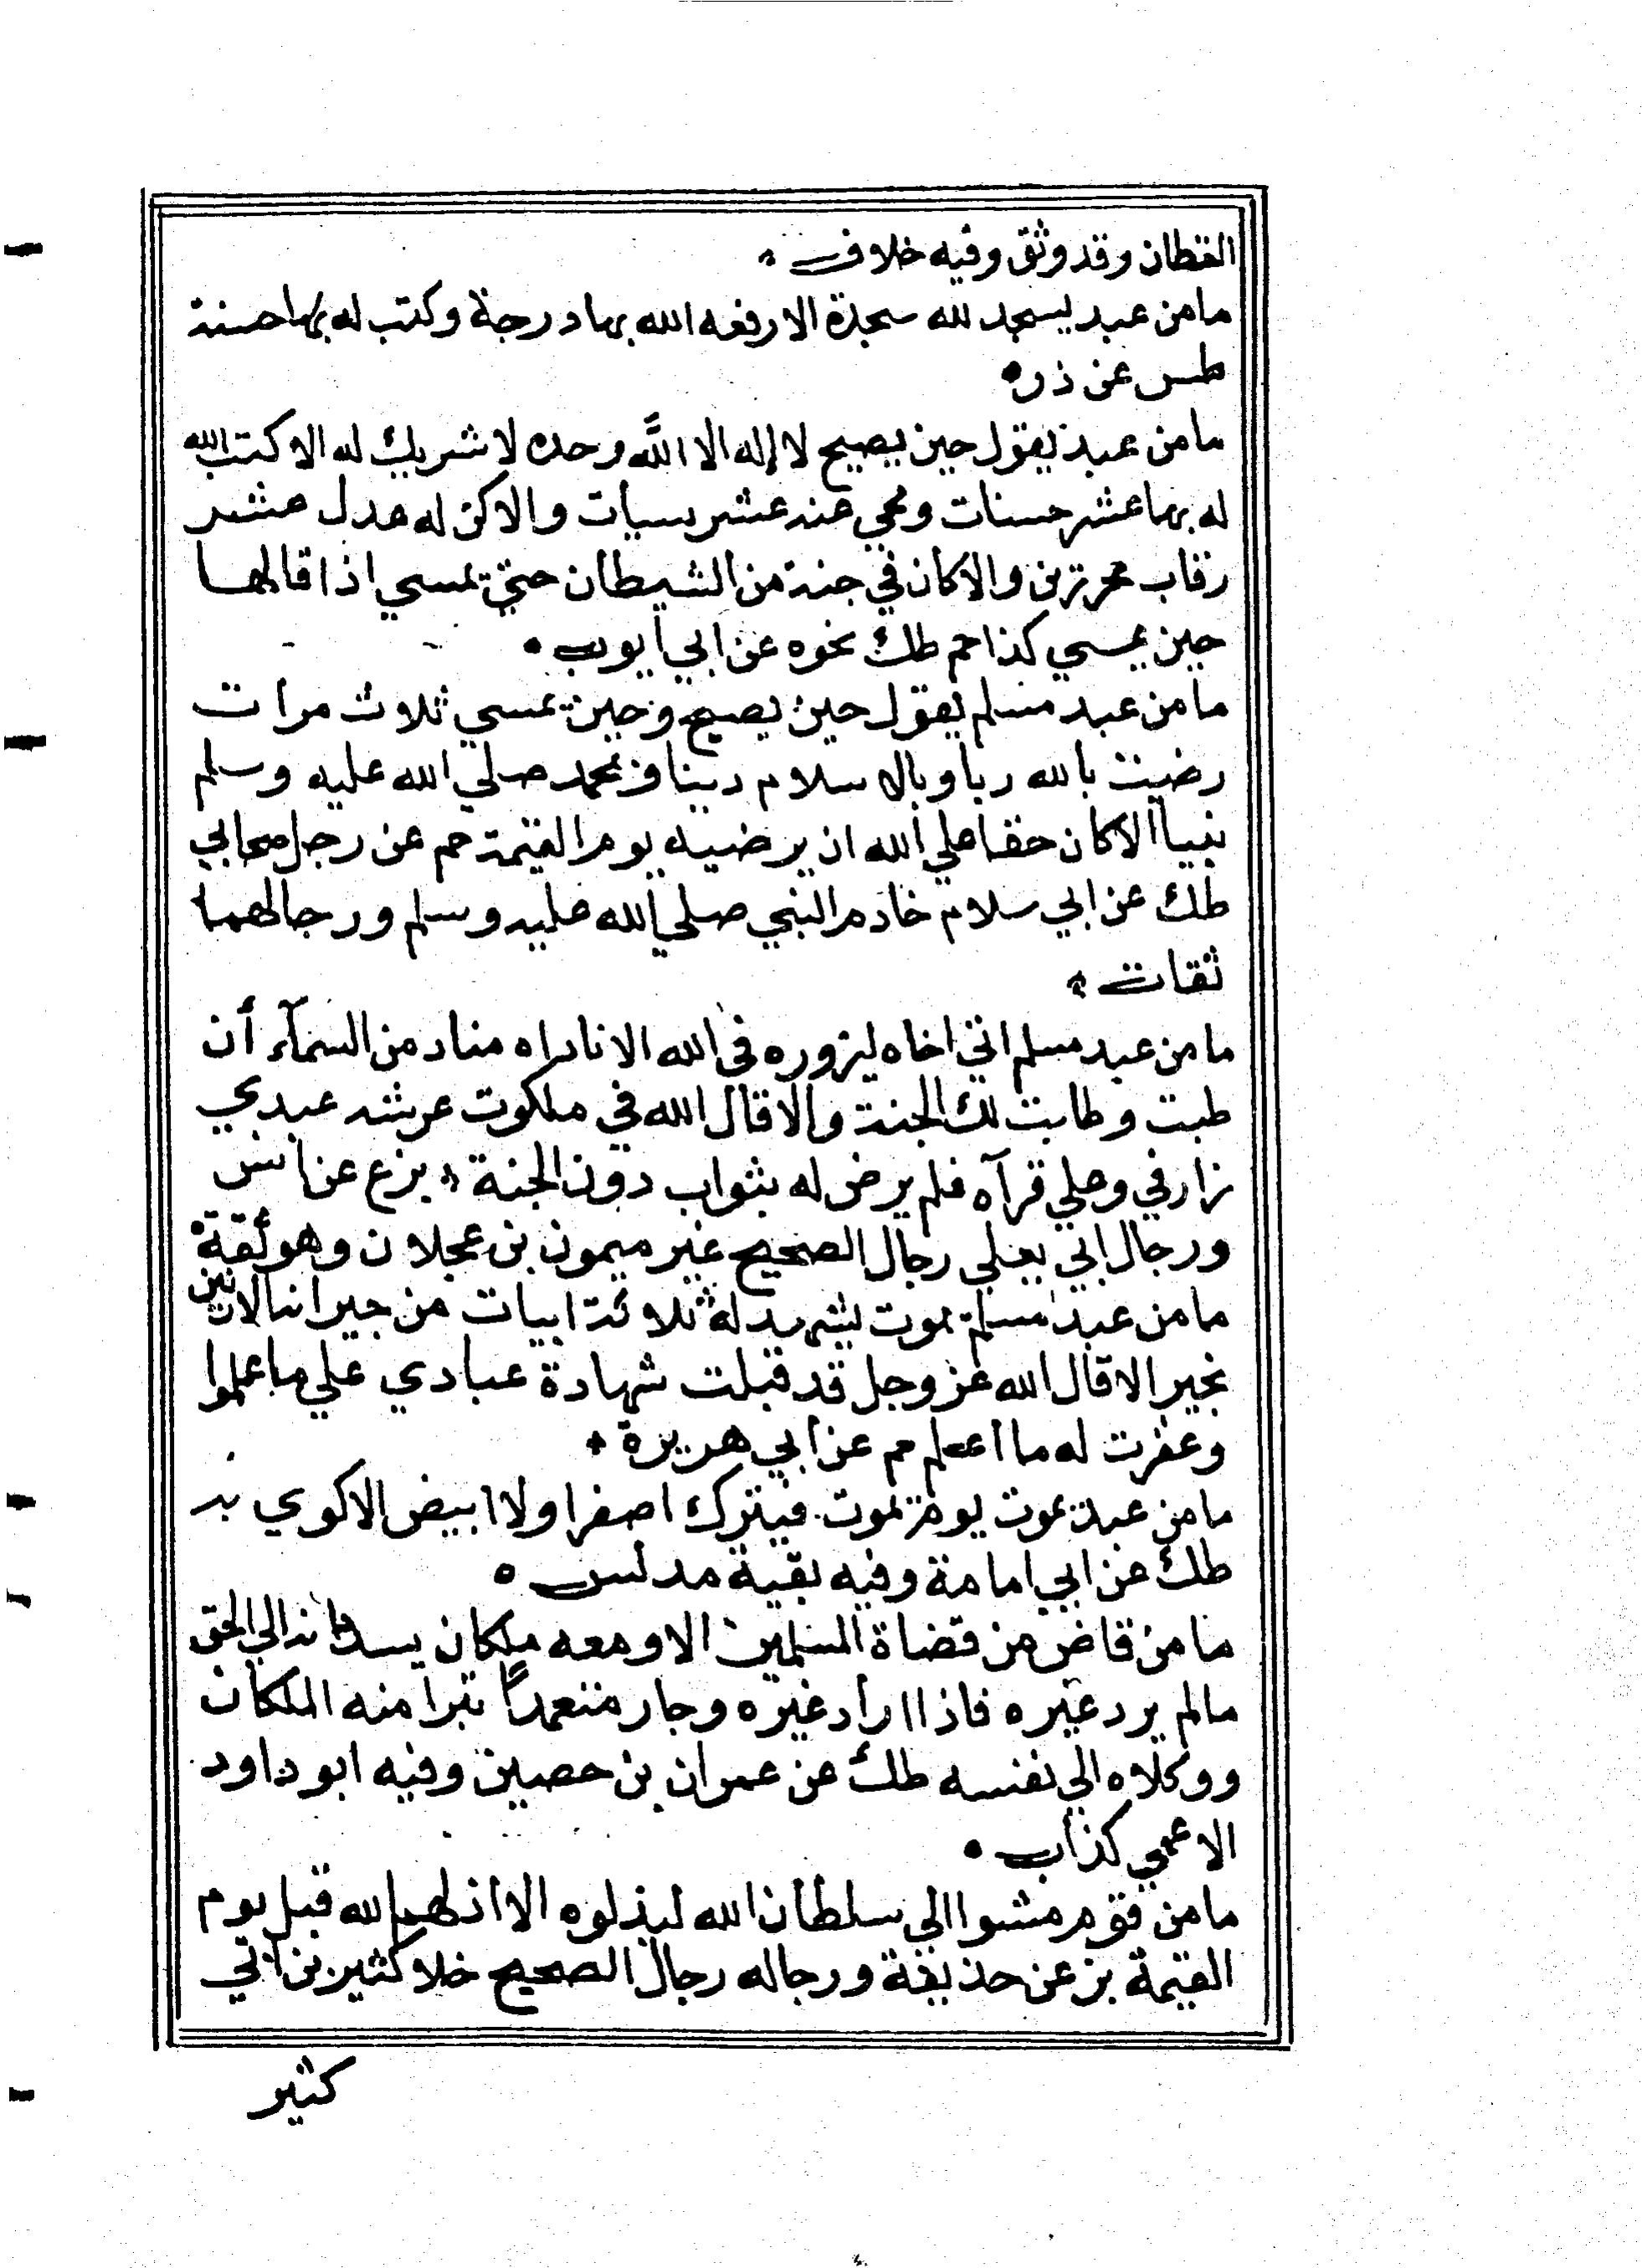 القطان وقد وثق وفيه خلاف
ما من عبد يسجد لله سجدة الا رفعه الله بها درجة وكتب له بها حسنة
طس عن ذر
ما من عبد يقول حين يصبح لا إله الا الله وحده لا شريك له الا كتب الله
له بها عشر حسنات ومحي عنه عشر سيات والا كن له عدل عشر
رقاب محررين والا كان في جنة من الشيطان حتي يمسي اذا قالها
حين يمسي كذا حم طك نحوه عن ابي ايوب
ما من عبد مسلم يقول حين يصبح وحين يمسي ثلاث مرات
رضيت بالله ربا وبالاسلام دينا وبمحمد صلي الله عليه وسلم
نبيا الا كان حقا علي الله ان يرضيه يوم القيمة حم عن رجل صحابي
طك عن ابي سلام خادم النبي صلي الله عليه وسلم ورجالهما
ثقات
ما من عبد مسلم اتي اخاه ليزوره في الله الا ناداه مناد من السمآء أن
طبت وطابت لك الجنة والا قال الله في ملكوت عرشه عبدي
زار في وعلي قرآه فلم يرض له بثواب دون الجنة بز ع عن انس
ورجال ابي يعلي رجال الصحيح غير ميمون بن عجلان وهو ثقة
ما من عبد مسلم يموت يشهد له ثلاثة ابيات من جيرانه الادنين
بخير الا قال الله عز وجل قد قبلت شهادة عبادي علي ما عملوا
وغفرت له ما اعلم حم عن ابي هريرة
ما من عبد يموت يوم يموت فيترك اصفرا ولا ابيض الا كوي به
طك عن ابي امامة وفيه بقية مدلس
ما من قاض من قضاة المسلمين الا ومعه ملكان يسددانه الي الحق
ما لم يرد غيره فاذا اراد غيره وجار متعمداً تبرا منه الملكان
ووكلاه الي نفسه طك عن عمران بن حصين وفيه ابو داود
الاعمي كذاب
ما من قوم مشوا الي سلطان الله ليذلوه الا اذلهم الله قبل يوم
القيمة بز عن حذيفة ورجاله رجال الصحيح خلا كثير بن ابي
كثير